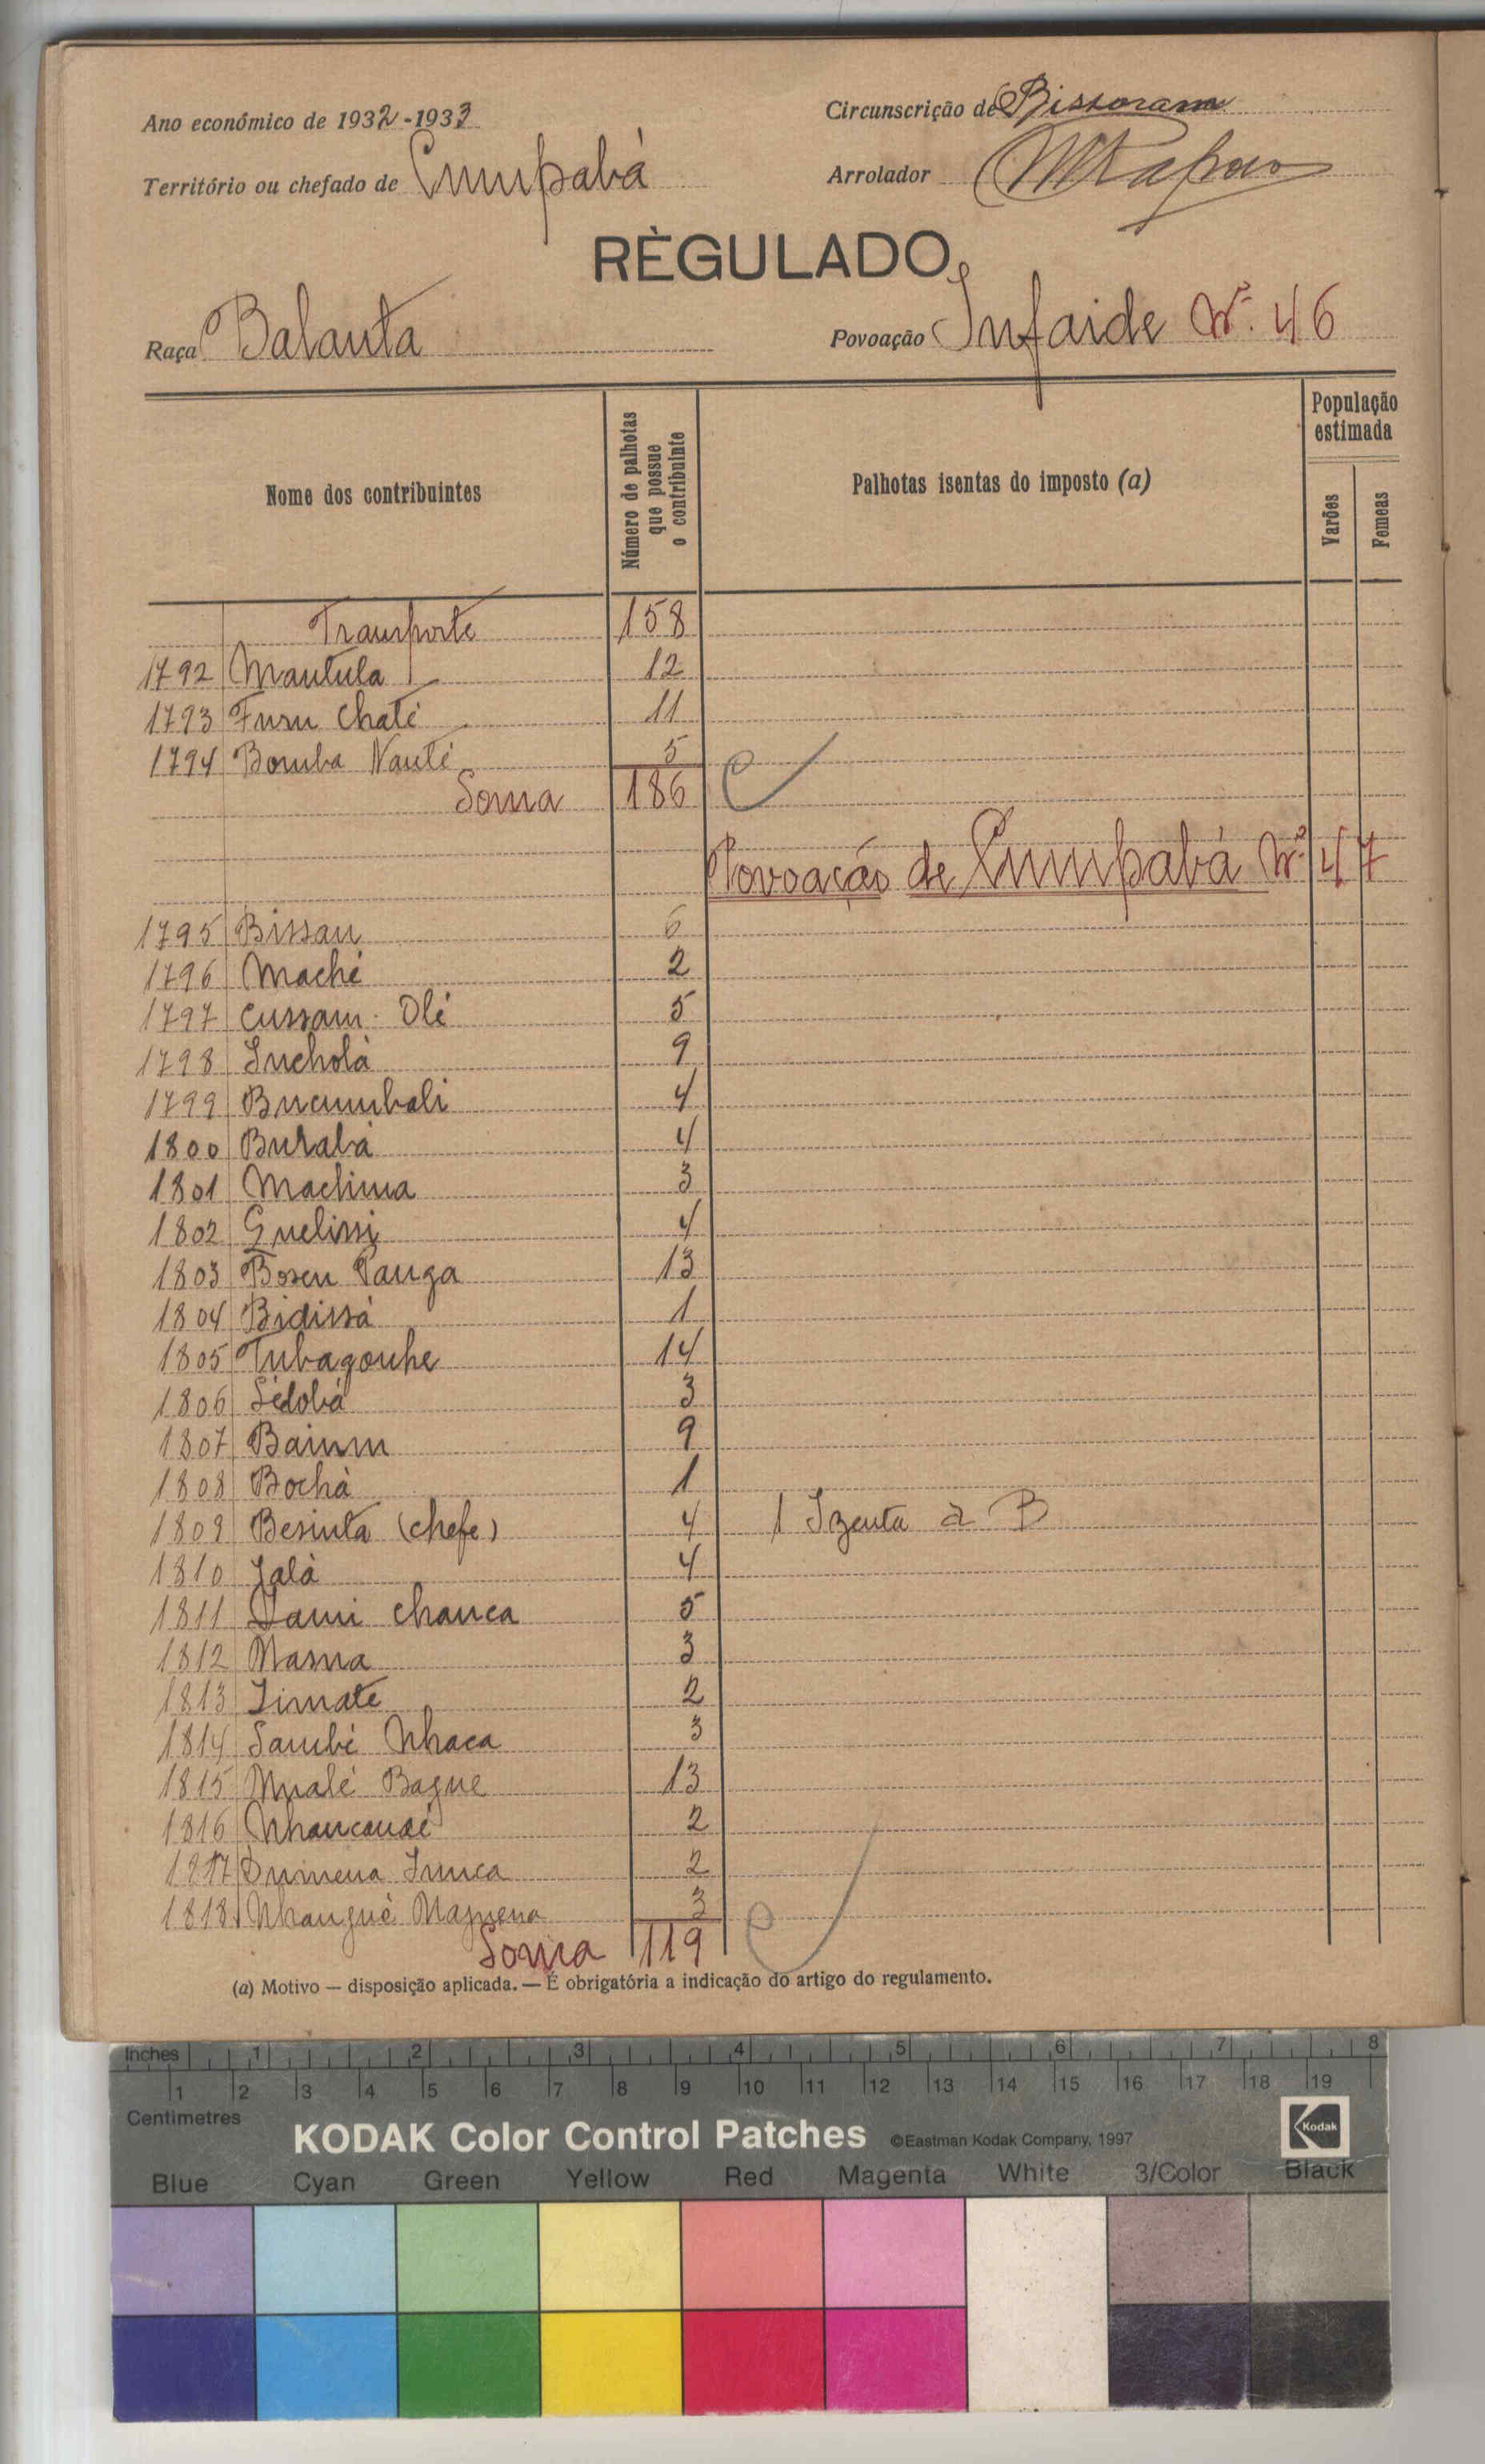 Ano económico de 1932-1933
Circunscrição de Bissoram
Território ou chefado de Cumupabá
Arrolador
RÈGULADO
Raça Balanta
Povoação Infaide Nº. 46
Nome dos contribuintes
Número de palhotas que possue o contribuinte
Palhotas isentas do imposto (a)
População estimada
Varões
Femeas
Transporte 158
1792 Mantula 12
1793 Fusu Chaté 11
1794 Bomba Nanté 5
Soma 186
Povoação de Cumupabá Nº. 47
1795 Bissau 6
1796 Maché 2
1797 Cussam Olé 5
1798 Incholá 9
1799 Bucumbali 4
1800 Burabá 4
1801 Machima 3
1802 Guelissi 4
1803 Boseu Panga 13
1804 Bidissá 1
1805 Tubagonhe 14
1806 Sédobá 3
1807 9
1808 Bochá 1
1809 Besinta (chefe) 4 1 Izenta a B
1810 Jalá 4
1811 Dami chanca 5
1812 Masna 3
1813 2
1814 Sambé Nhaca 3
1815 Mualé Bague 13
1816 2
1817 2
1818 Nhangué 3
Soma 119
(a) Motivo — disposição aplicada. — É obrigatória a indicação do artigo do regulamento.
Inches 1 2 3 4 5 6 7 8
1 2 3 4 5 6 7 8 9 10 11 12 13 14 15 16 17 18 19
Centimetres
KODAK Color Control Patches ©Eastman Kodak Company, 1997 Kodak
Blue Cyan Green Yellow Red Magenta White 3/Color Black